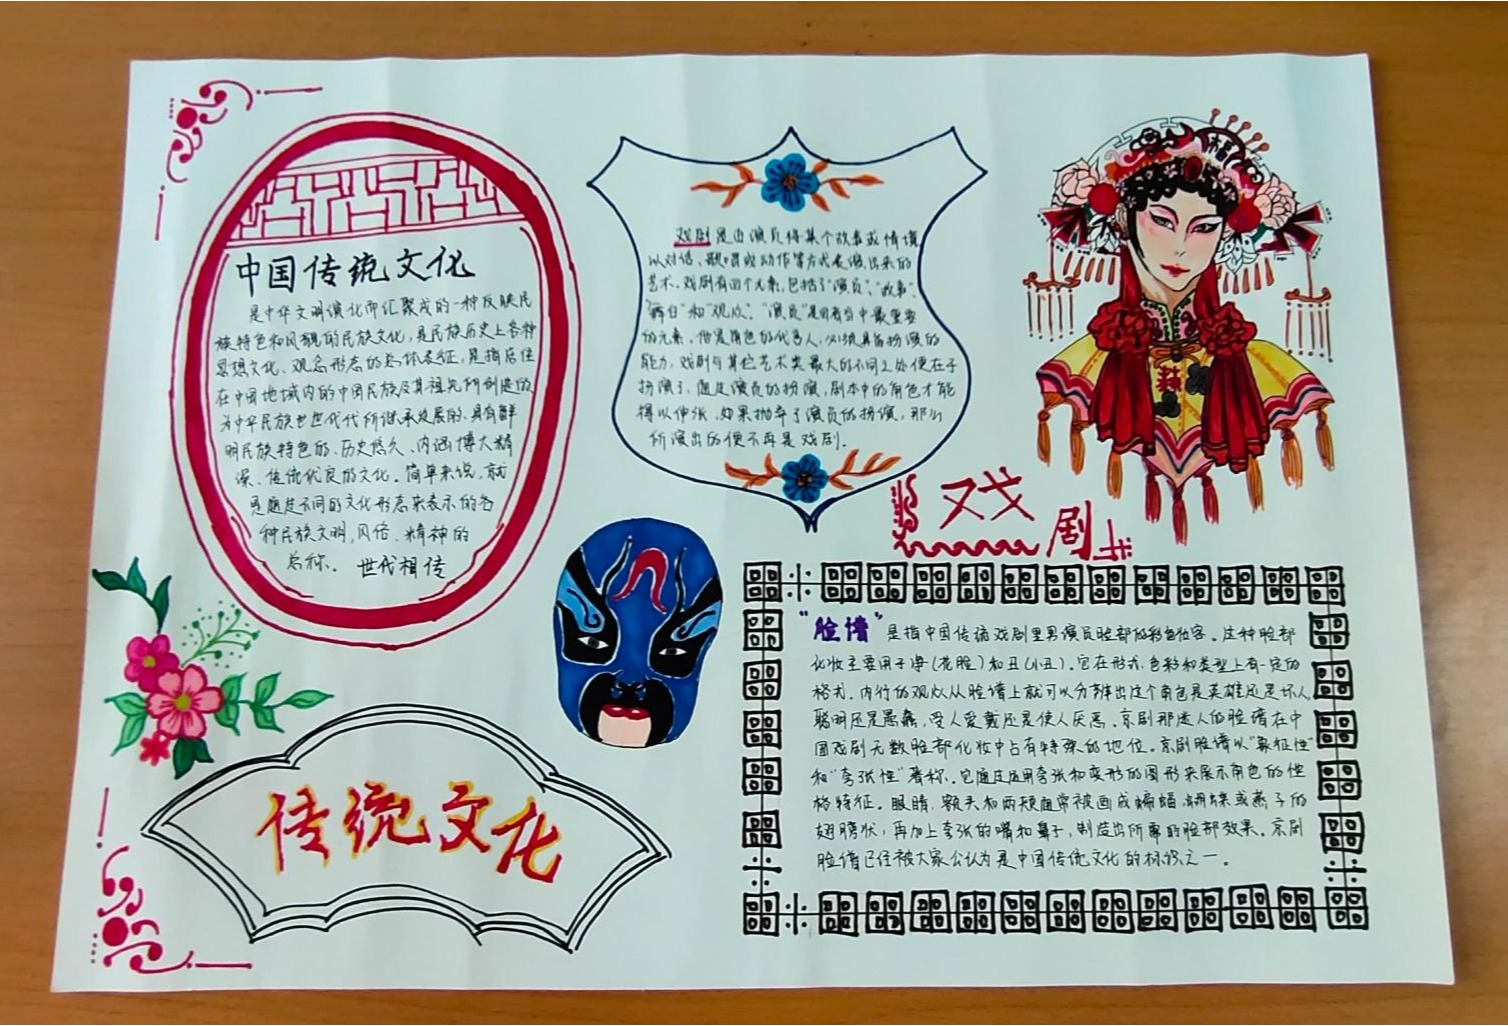 中国传统文化
是中华文明演化而汇聚成的一种反映民
族特色和风貌的民族文化，是民族历史上各种
思想文化、观念形态的总体表征，是指居住
在中国地域内的中国民族及其祖先所创造的
为中华民族世世代代所继承发展的、具有鲜
明民族特色的、历史悠久、内涵博大精
深、传统优良的文化。简单来说，就
是通过不同的文化形态来表示的各
种民族文明，风俗、精神的
总称。 世代相传
戏剧是由演员将某个故事或情境
以对话、歌唱或动作等方式表演出来的
艺术。戏剧有四个元素，包括了“演员”、“故事”、
“舞台”和“观众”。“演员”是四者当中最重要
的元素，他是角色的代言人，必须具备扮演的
能力，戏剧与其它艺术类最大的不同之处便在于
扮演了，通过演员的扮演，剧本中的角色才能
得以伸张，如果抛弃了演员的扮演，那么
所演出的便不再是戏剧。
福
戏
剧
“脸谱”是指中国传统戏剧里男演员脸部的彩色妆容。这种脸部
化妆主要用于净(花脸)和丑(小丑)。它在形式，色彩和类型上有一定的
格式。内行的观众从脸谱上就可以分辨出这个角色是英雄还是坏人，
聪明还是愚蠢，受人爱戴还是使人厌恶。京剧那迷人的脸谱在中
国戏剧无数脸部化妆中占有特殊的地位。京剧脸谱以“象征性”
和“夸张性”著称。它通过运用夸张和变形的图形来展示角色的性
格特征。眼睛，额头和两颊通常被画成蝙蝠，蝴蝶或燕子的
翅膀状，再加上夸张的嘴和鼻子，制造出所需的脸部效果。京剧
脸谱已经被大家公认为是中国传统文化的标识之一。
传统文化